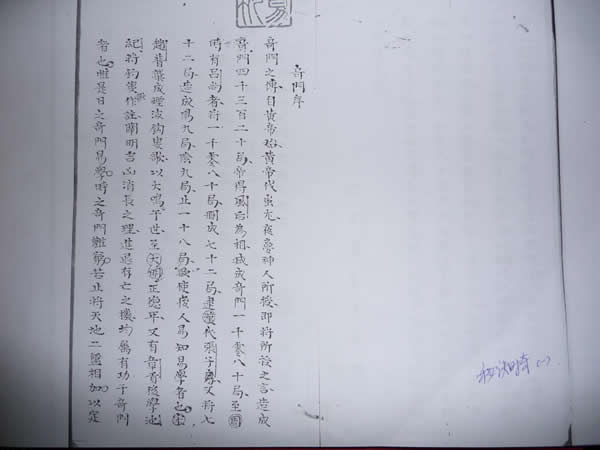 奇門序
奇門之傳自黃帝始黃帝代蚩尤夜夢神人所授即將所授之言造成
奇門四千三百二十局帝得風后為相減成奇門一千零八十局至周
時有呂尚者將一千零八十局刪成七十二局逮漢代張子房又將七
十二局造成陽九局陰九局止一十八局誠使後人易知易學者也宋
趙普纂成理法鈎叟歌以大鳴于世至大明正德年又有章香隱學池
紀將鈎叟作註闡明吉凶消長之理進退有亡之機均屬有功于奇門
者也雖是日之奇門易學時之奇門難窮若止將天地二盤相加以定
(一)